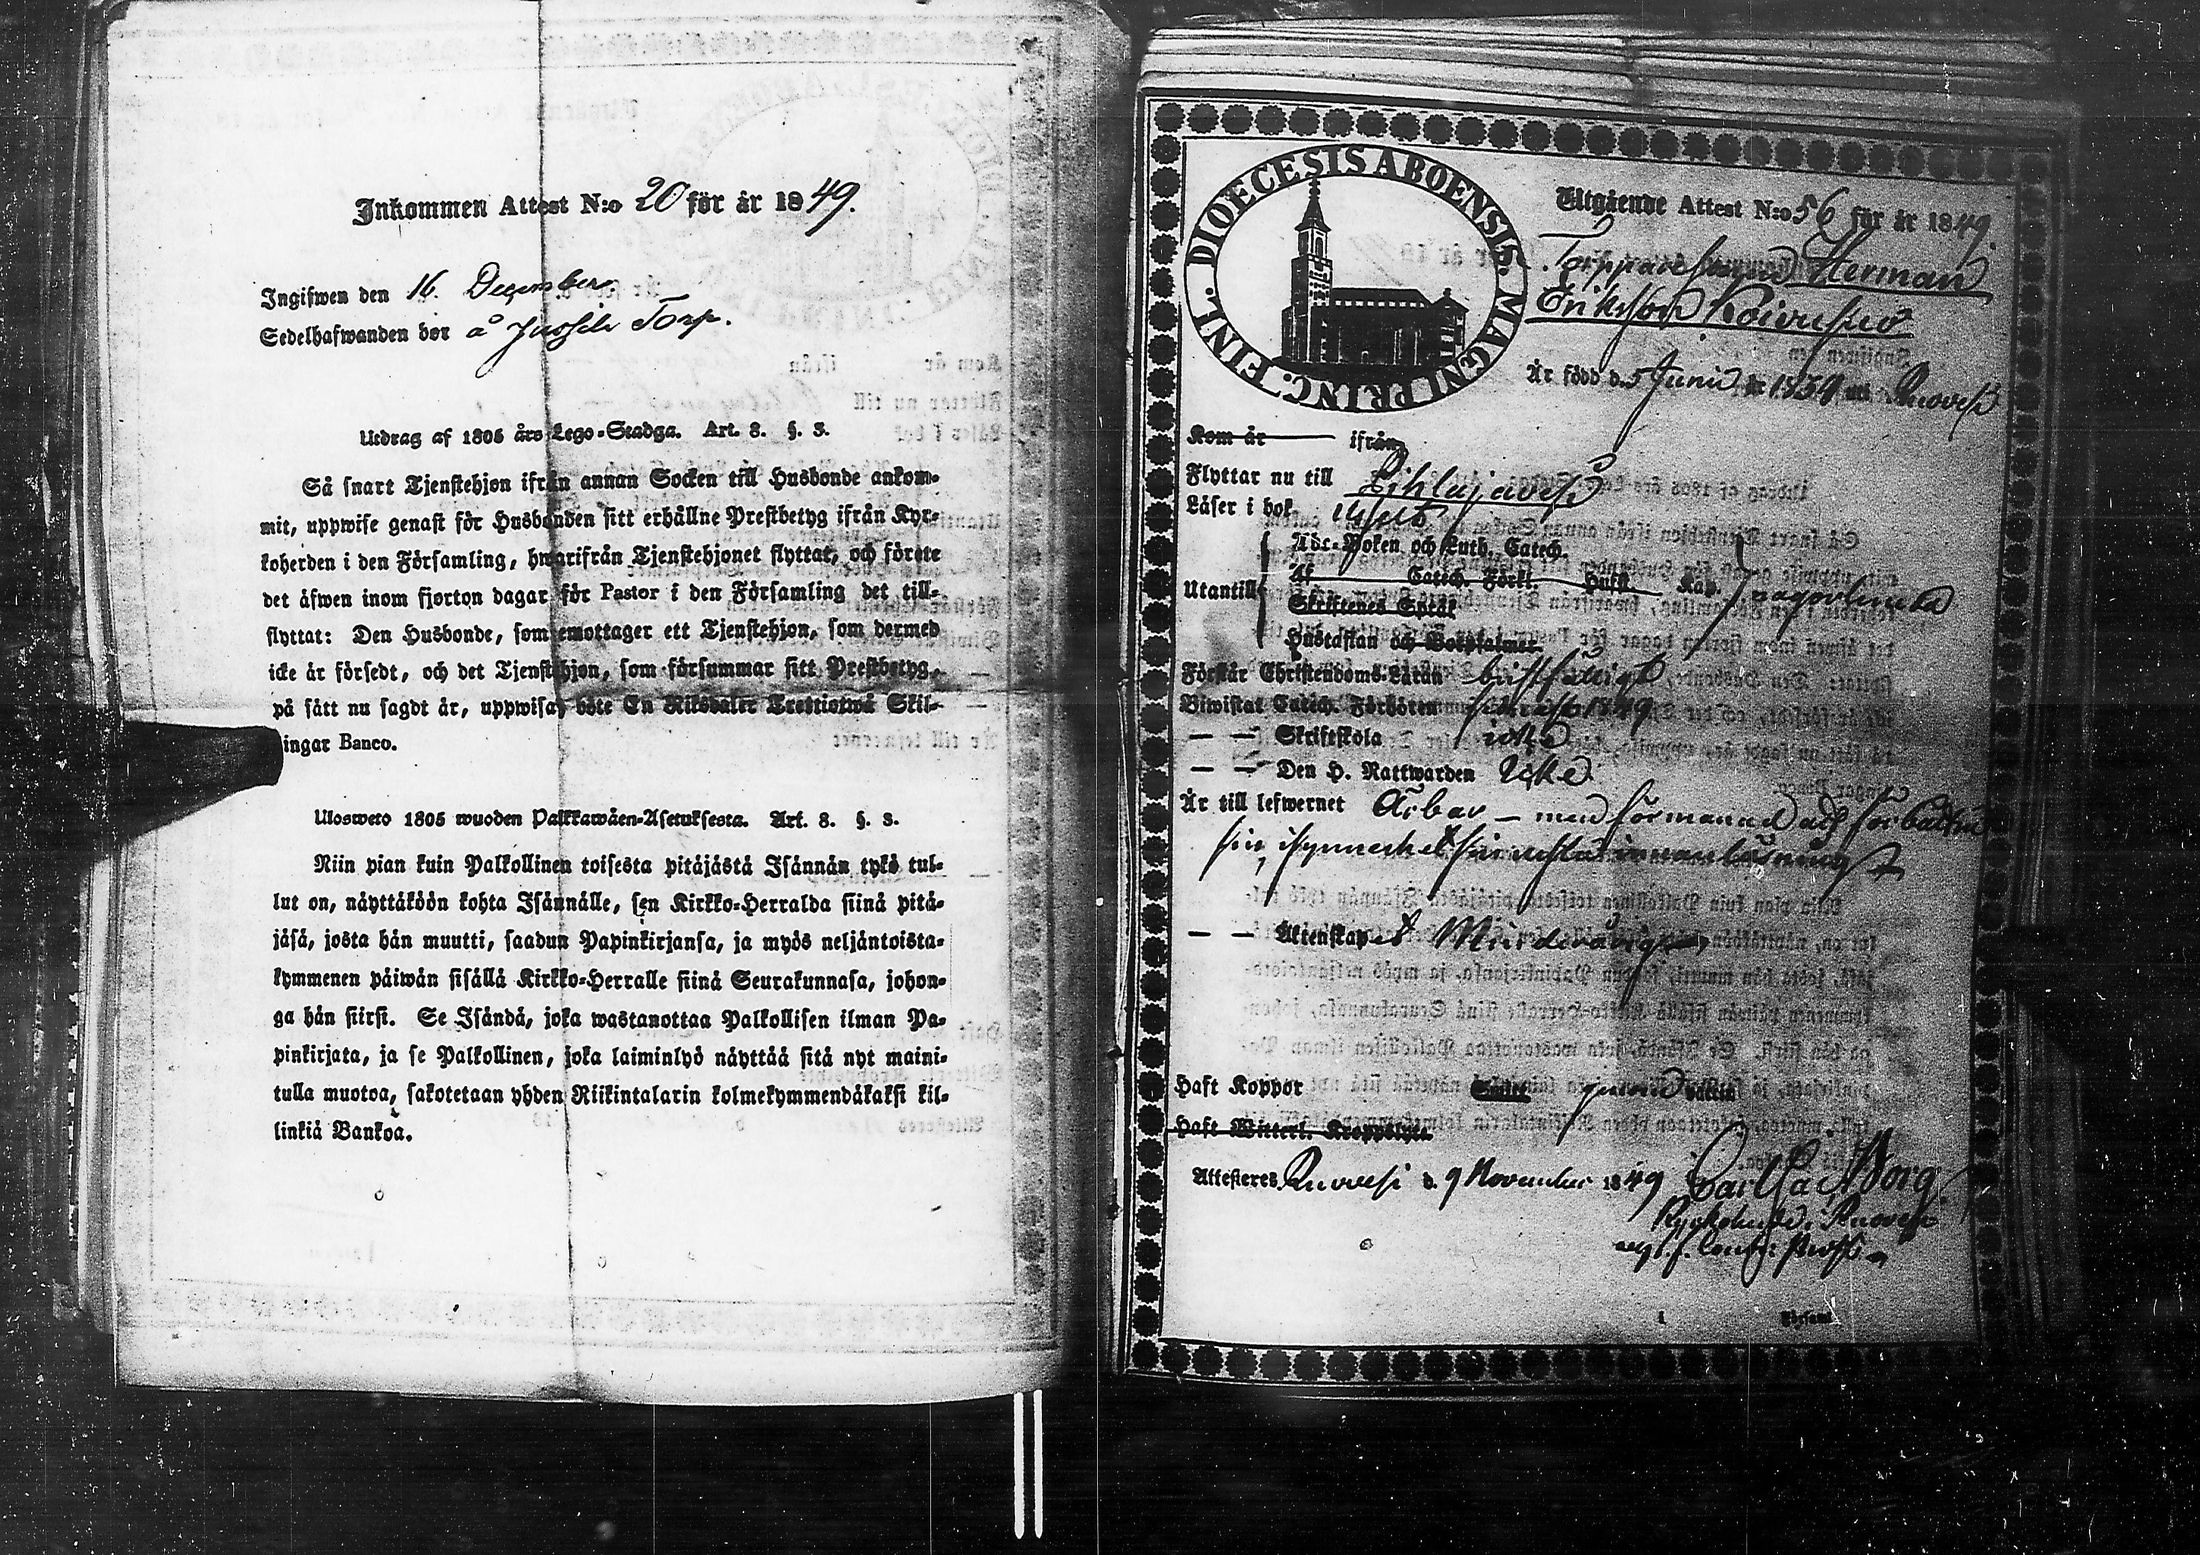 Inkommen Attest N:o 20 för år 1849.
Ingifwen den 16 December
Sedelhafwanden bor å Torp.
Utdrag af 1805 års Lego-Stadga. Art. 8. §. 3.
Så snart Tjenstehjon ifrån annan Socken till Husbonde ankom-
mit, uppwise genast för Husbonden sitt erhållne Prestbetyg ifrån Kyr-
koherden i den Församling, hwarifrån Tjenstehjonet flyttat, och förete
det äfwen inom fjorton dagar för Pastor i den Församling det till-
flyttat: Den Husbonde, som emottager ett Tjenstehjon, som dermed
icke är försedt, och det Tjenstehjon, som försummar sitt Prestbetyg,
på sätt nu sagdt är, uppwisa, böte En Riksdaler Trettiotwå Skil-
lingar Banco.
Ulosweto 1805 wuoden Palkkawäen-Asetuksesta. Art. 8. §. 3.
Niin pian kuin Palkollinen toisesta pitäjästä Isännän tykö tul-
lut on, näyttäköön kohta Isännälle, sen Kirkko-Herralda siinä pitä-
jäsä, josta hän muutti, saadun Papinkirjansa, ja myös neljäntoista-
kymmenen päiwän sisällä Kirkko-Herralle siinä Seurakunnasa, johon-
ga hän siirsi. Se Isändä, joka wastanottaa Palkollisen ilman Pa-
pinkirjata, ja se Palkollinen, joka laiminlyö näyttää sitä nyt maini-
tulla muotoa, sakotetaan yhden Riikintalarin kolmekymmendäkaksi kil-
linkiä Bankoa.
DIOECESIS ABOENSIS. MAGNI PRINC. FINL.
Utgående Attest N:o 56 för år 1849.
Torparesonen Herman
Eriksson Koivusuo
Är född d. 5 Junii år 1839 uti Ruovesi
Kom år ifrån
Flyttar nu till Pihlajavesi
Läser i bok
Utantill
Abc-Boken och Luth. Catech.
Af Catech. Förkl. Hufst. Kap. någorlunda
Skriftenes Språk
Hustaflan och Botpsalmer
Förstår Christendoms-Läran bristfälligt
Biwistat Catech. Förhören 1849
— — Skriftskola icke
— — Den H. Nattwarden Icke
Är till lefwernet Ärbar – med förmaning att förbättra
sin, i synnerhet sin innanläsning
— — Äktenskapet Minderårig
Haft Koppor Smitt genom Vaccin
Haft Witterl. Kroppslyte
Attesteres Ruovesi d. 9 November 1849 Carl Borg
Kyrkoherde i Ruovesi
1 Församl.